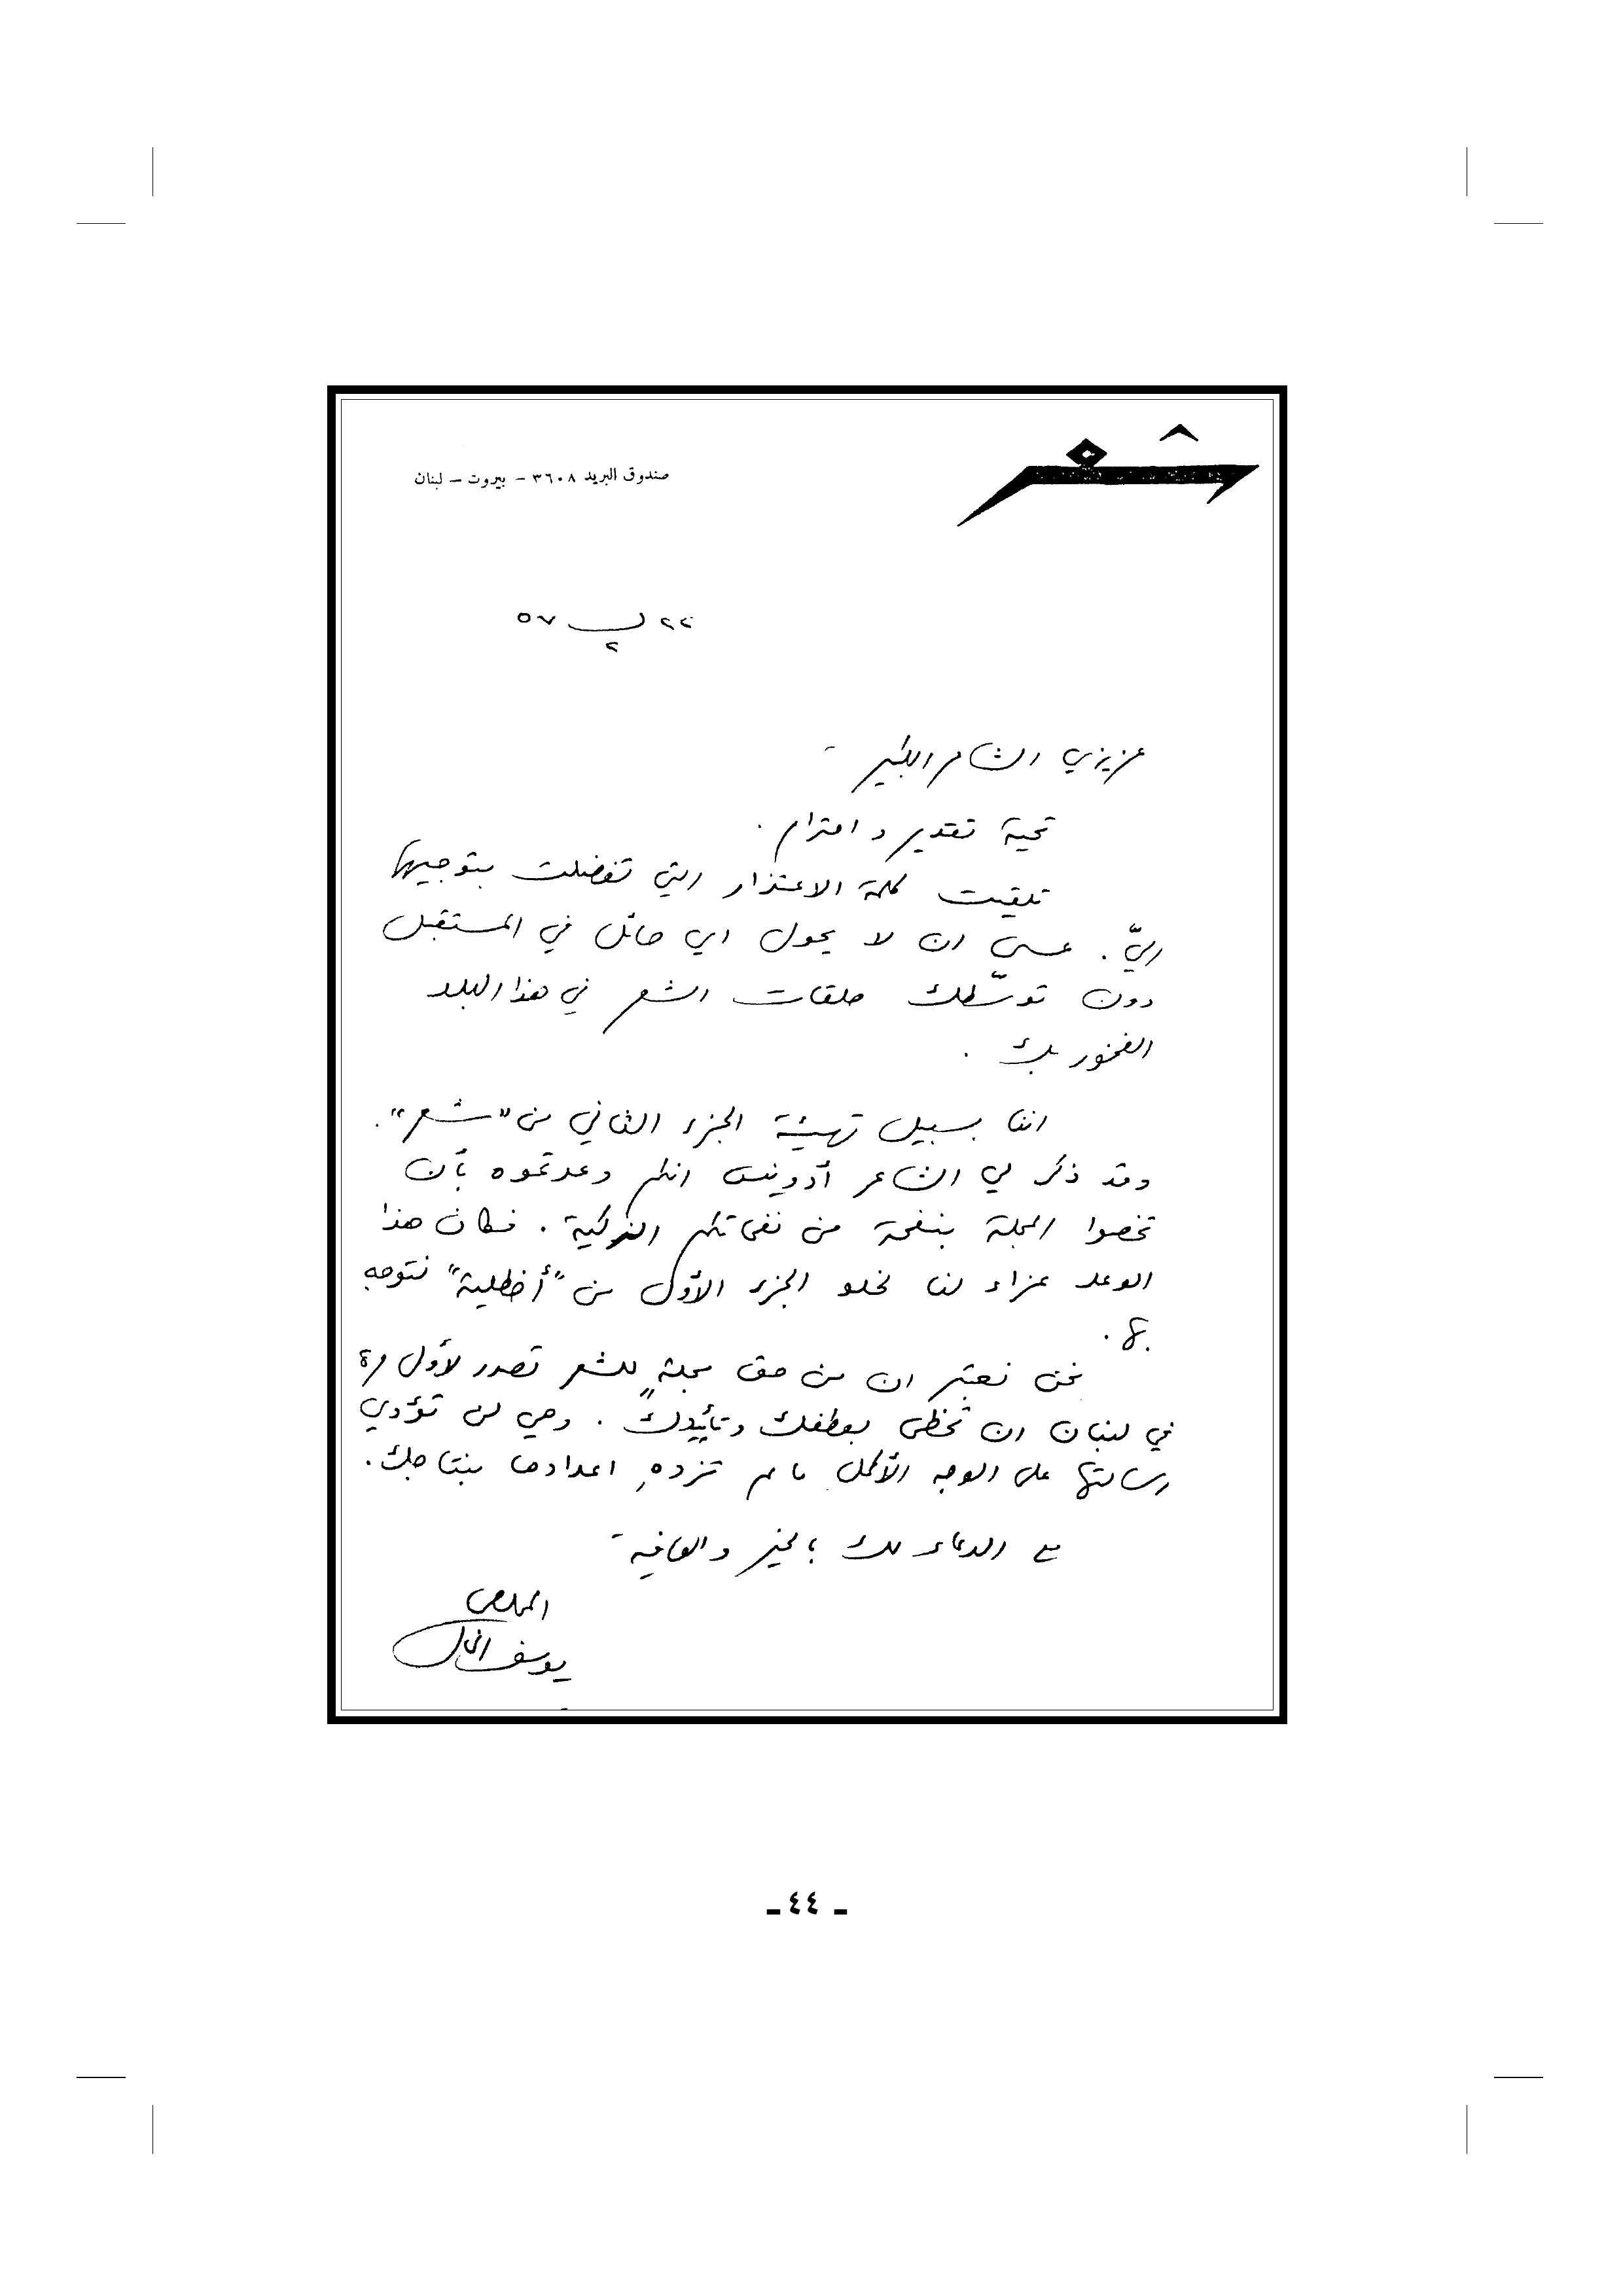 شعر
صندوق البريد ٣٦٠٨ - بيروت - لبنان
٥٧
عزيزي الشاعر الكبير
تحية تقدير واحترام.
تلقيت كلمة الاعتذار التي تفضلت بتوجيهها
اليّ. عسى ان لا يحول اي حائل في المستقبل
دون توسّطك حلقات الشعر في هذا البلد
الفخور بك.
اننا بسبيل تهيئة الجزء الثاني من "شعر".
وقد ذكر لي الشاعر أدونيس انكم وعدتموه بأن
تخصوا المجلة بنفحة من نفحاتكم الزكية. فكان هذا
الوعد عزاء لنا لخلو الجزء الأول من "أخطلية" نتوجه
بها.
نحن نعتبر ان من حق مجلةٍ للشعر تصدر لأول مرة
في لبنان ان تحظى بعطفك وتأييدك. وهي لن تؤدي
رسالتها على الوجه الأكمل ما لم تزدهِ اعدادها بنتاجك.
مع الدعاء لك بالخير والعافية
المخلص
يوسف الخال
ـ ٤٤ ـ